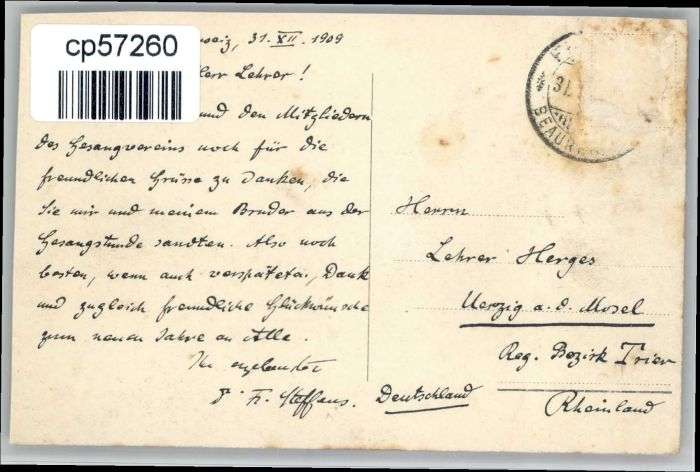 cp57260
31. XII. 1909
Herr Lehrer!
und den Mitgliedern
des Gesangvereins noch für die
freundlichen Grüsse zu danken, die
Sie mir und meinem Bruder aus der
Gesangstunde sandten. Also noch
besten, wenn auch verspäteten, Dank
und zugleich freundliche Glückwünsche
zum neuen Jahre an Alle.
Ihr ergebenster
Fr. Steffens.
31.
BEAUR
Herrn
Lehrer Herges
Uerzig a. d. Mosel
Reg. Bezirk Trier
Rheinland
Deutschland